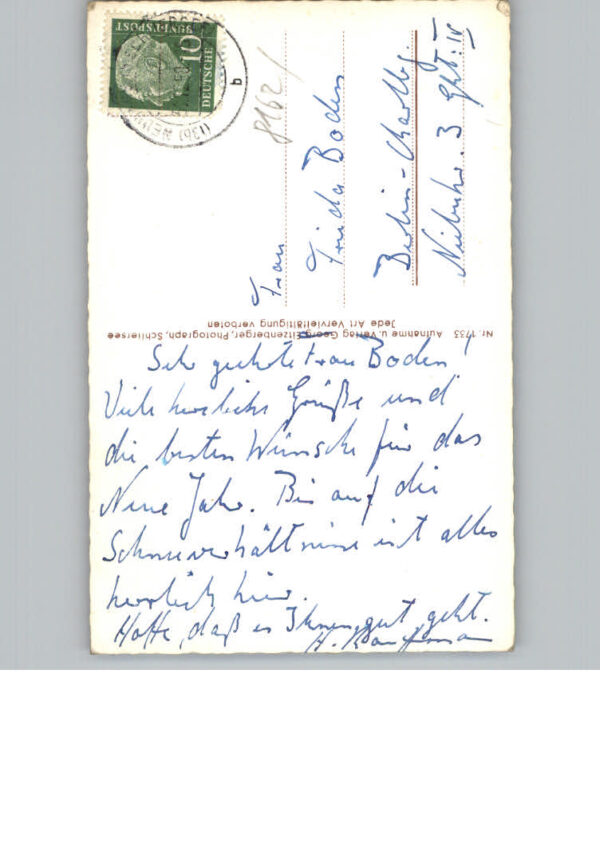 10
DEUTSCHE
BUNDESPOST
(13b)
b
8162/
Frau
Frida Boden
Berlin-Charlbg.
Niebuhr. 3 Ght: IV
Nr. 1733 Aufnahme u. Verlag Georg Eitzenberger, Photograph, Schliersee
Jede Art Vervielfältigung verboten
Sehr geehrte Frau Boden!
Viele herzliche Grüße und
die besten Wünsche für das
Neue Jahr. Bis auf die
Schneeverhältnisse ist alles
herrlich hier.
Hoffe, daß es Ihnen gut geht.
H. Kaufmann